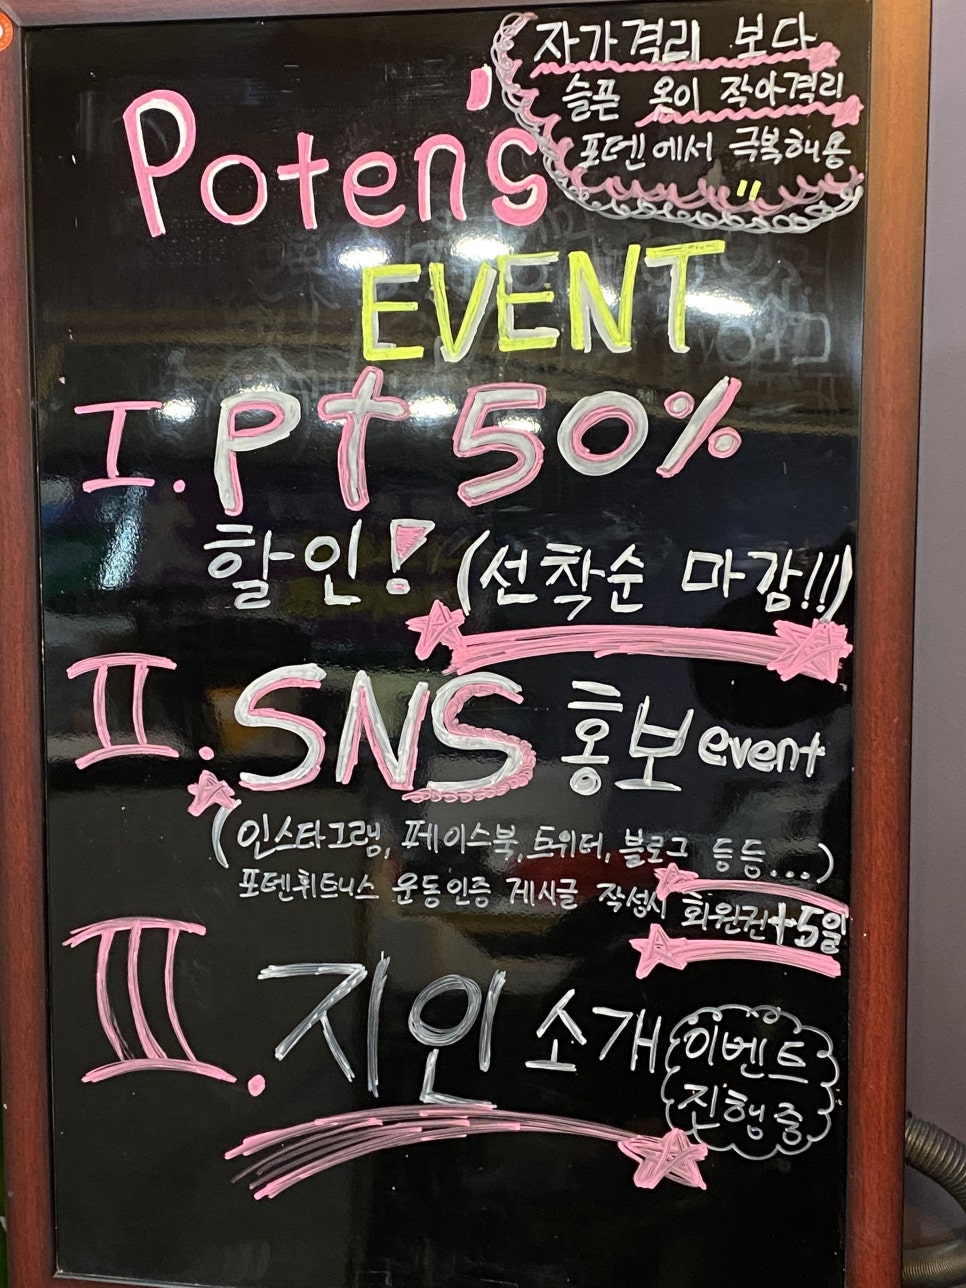 자가격리 보다
슬픈 옷이 작아격리
포텐에서 극복해용
Poten's
EVENT
I. Pt 50%
할인! (선착순 마감!!)
II. SNS 홍보 event
(인스타그램, 페이스북, 트위터, 블로그 등등...)
포텐휘트니스 운동인증 게시글 작성시 회원권+5일
III. 지인 소개 이벤트
진행중